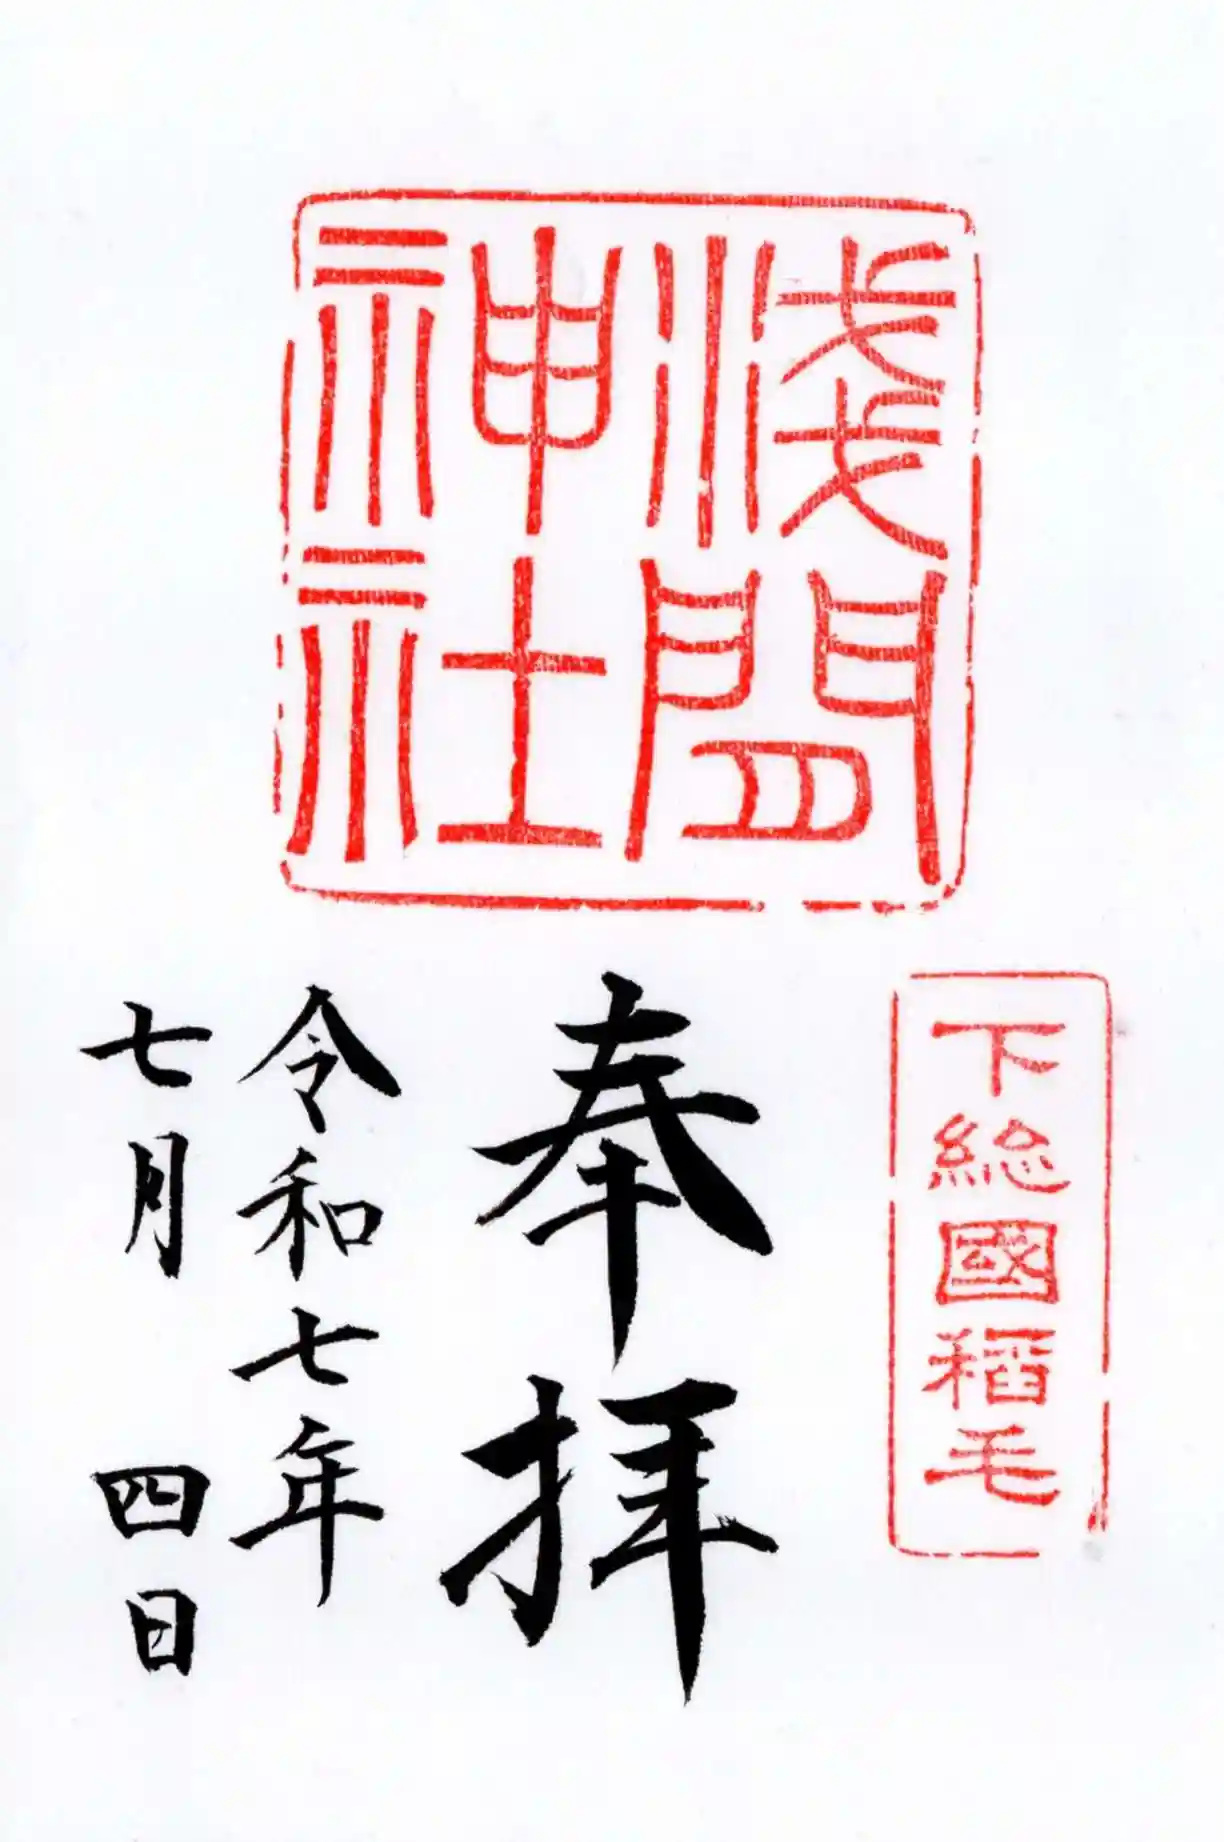 淺間
神社
下総國稲毛
奉拝
令和七年
七月四日